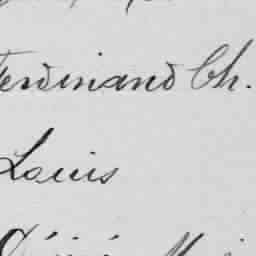 Ferdinand Ch.
Louis